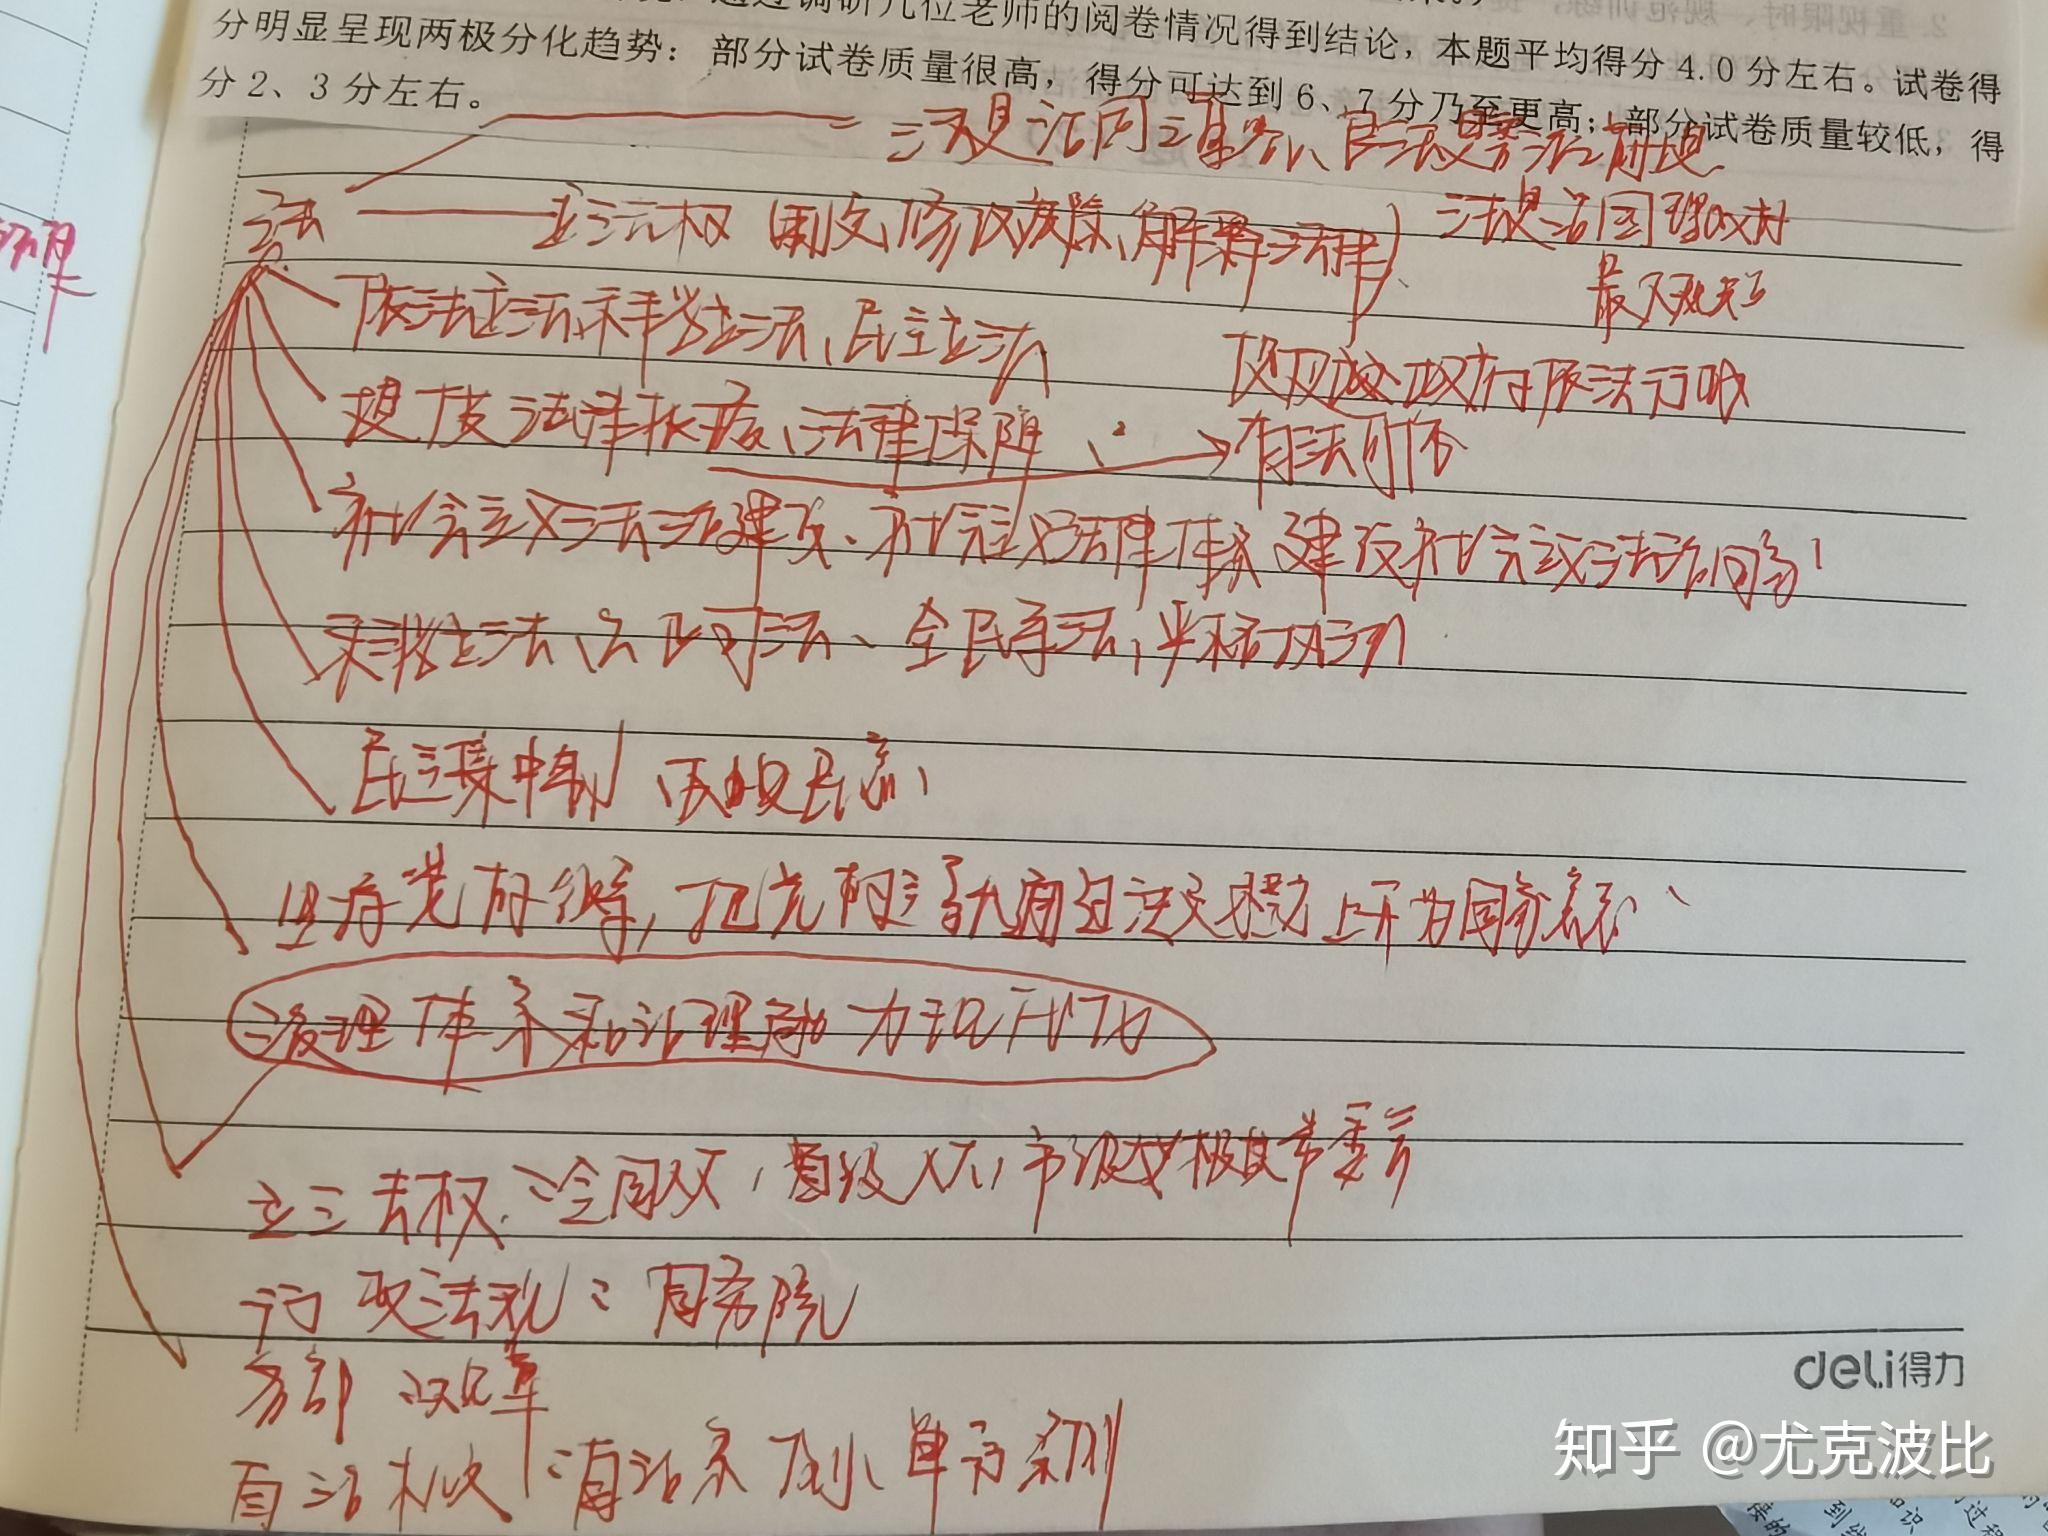 通过调研几位老师的阅卷情况得到结论，本题平均得分4.0分左右。试卷得
分明显呈现两极分化趋势：部分试卷质量很高，得分可达到6、7分乃至更高；部分试卷质量较低，得
分2、3分左右。
法是治国之重器、良法是善治之前提
法
立法权 制定、修改废除、解释法律）
法是治国理政
最
依法立法、科学立法、民主立法
政府依法行政
提供法律依据、法律保障、
有法可依
社会主义法治建设、社会主义法律体系 建设社会主义法治国家
科学立法、公正司法、全民守法，严格执法
民主集中制
坚持党的领导，把党的主张通过法定程序上升为国家意志、
治理体系和治理能力现代化
立法权：全国人大，省级人大，市级人大及其常委会
行政法规：国务院
各部
自治机关：自治条例、单行条例
deli得力
知乎 @尤克波比